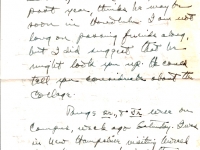 past year, thinks he may be
soon in Honolulu. I am not
long on passing friends along,
but I did suggest that he
might look you up. He could
tell you considerable about the
College.
Bugs were on
campus, week ago Saturday. I was
in New Hampshire visiting